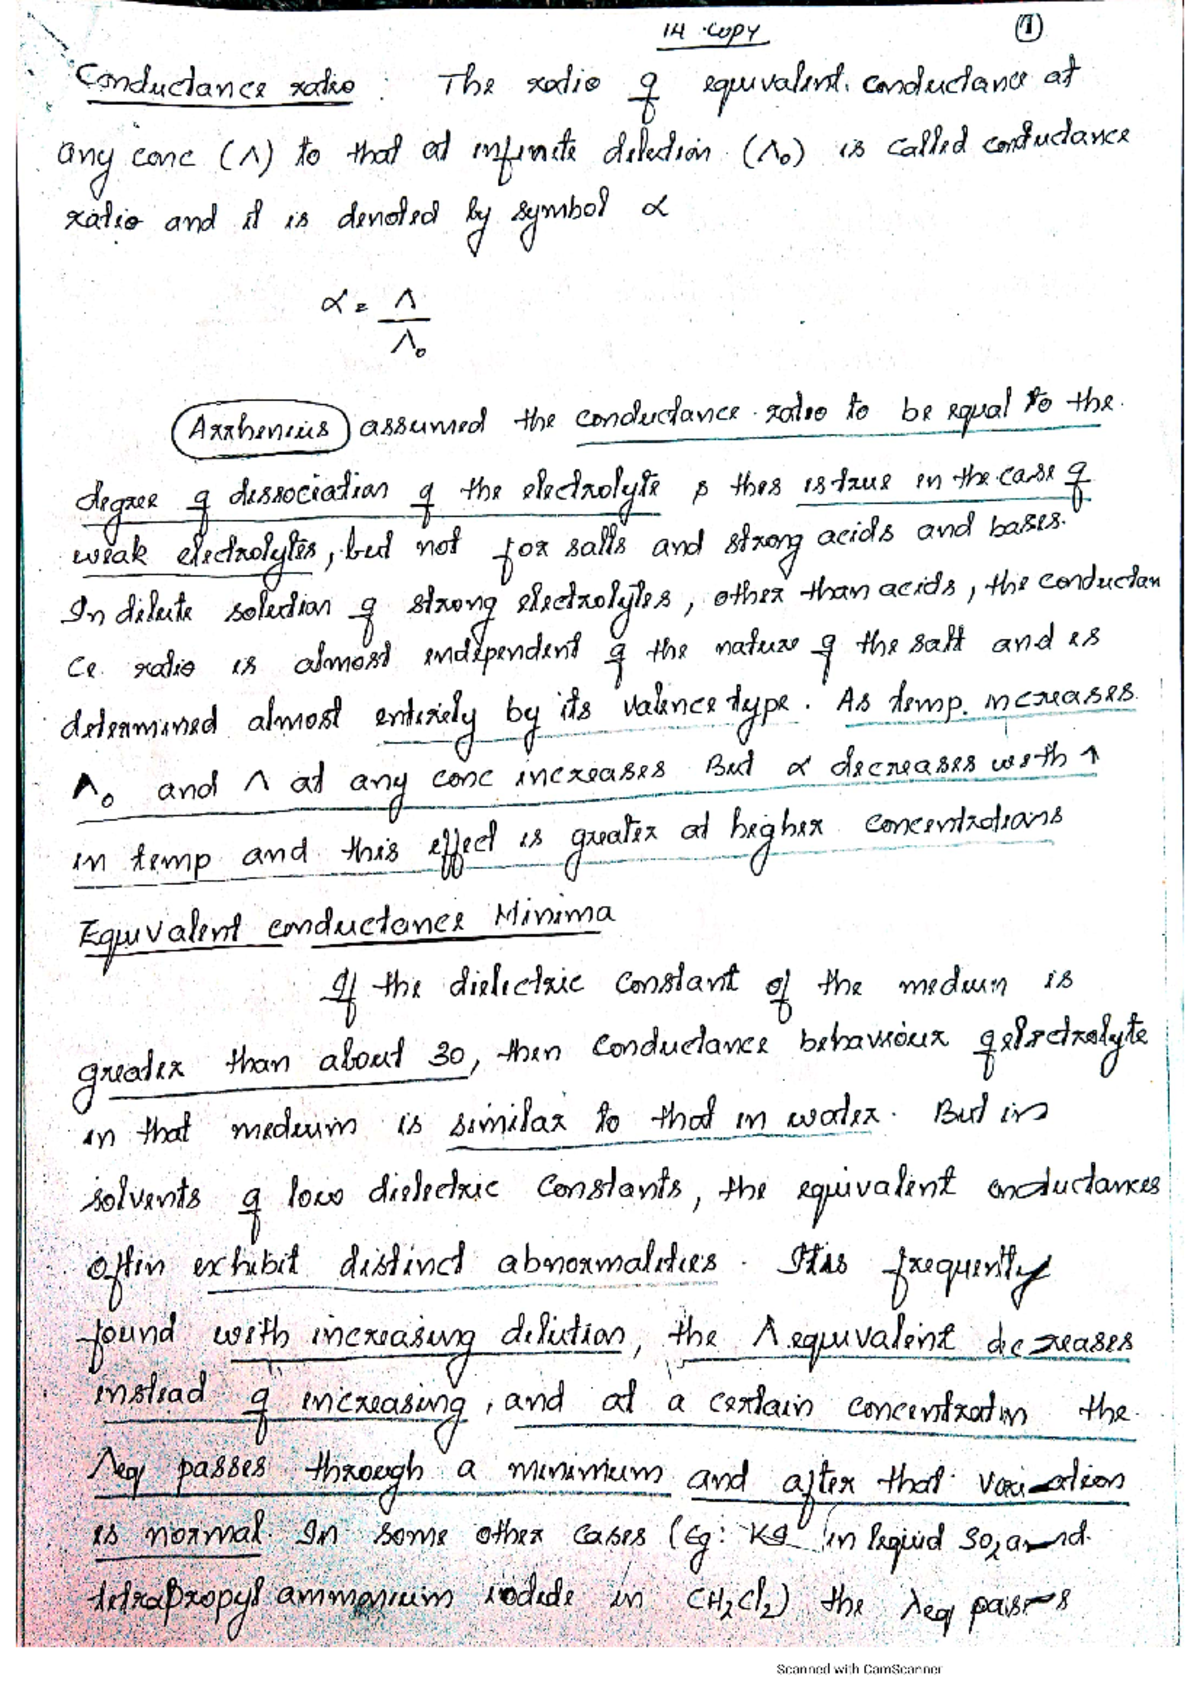 1H copy
1
Conductance ratio : The ratio of equivalent conductance at
any conc (Λ) to that at infinite dilution (Λ₀) is called conductance
ratio and it is denoted by symbol α
α = Λ
Λ₀
Arrhenius assumed the conductance ratio to be equal to the
degree of dissociation of the electrolyte & this is true in the case of
weak electrolytes, but not for salts and strong acids and bases.
In dilute solution of strong electrolytes, other than acids, the conductan
ce ratio is almost independent of the nature of the salt and is
determined almost entirely by its valence type. As temp. increases
Λ₀ and Λ at any conc increases But α decreases with ↑
in temp and this effect is greater at higher concentrations
Equivalent conductance Minima
If the dielectric constant of the medium is
greater than about 30, then conductance behaviour of electrolyte
in that medium is similar to that in water. But in
solvents of low dielectric constants, the equivalent conductances
often exhibit distinct abnormalities. It is frequently
found with increasing dilution, the Λ equivalent decreases
instead of increasing, and at a certain concentration the
Λeq passes through a minimum and after that variation
is normal. In some other cases (Eg: KI in liquid SO₂ and
tetrapropyl ammonium iodide in CH₂Cl₂) the λeq passes
Scanned with CamScanner